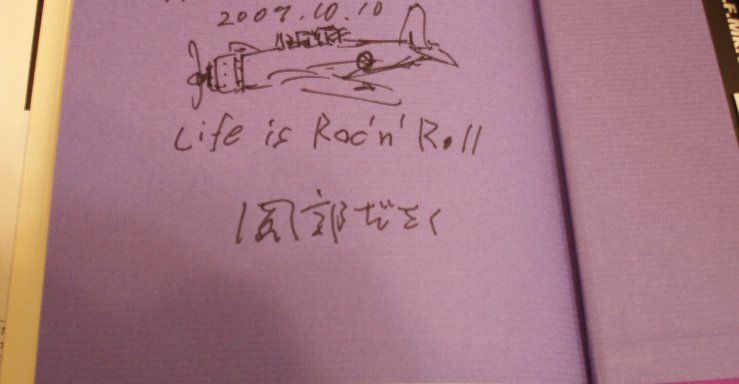 2009.10.10
Life is Roc'n' Roll
岡部ださく